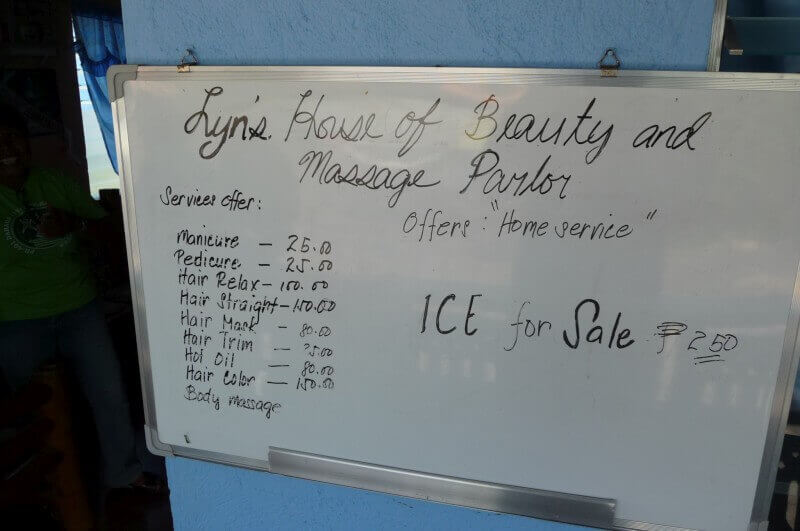 Lyn's House of Beauty and
Massage Parlor
Services offer:
Offers: "Home service"
Manicure — 25.00
Pedicure — 25.00
Hair Relax — 100.00
Hair Straight — 150.00
Hair Mask — 80.00
Hair Trim —
Hot Oil — 80.00
Hair Color — 150.00
Body massage
ICE for Sale ₱ 2.50